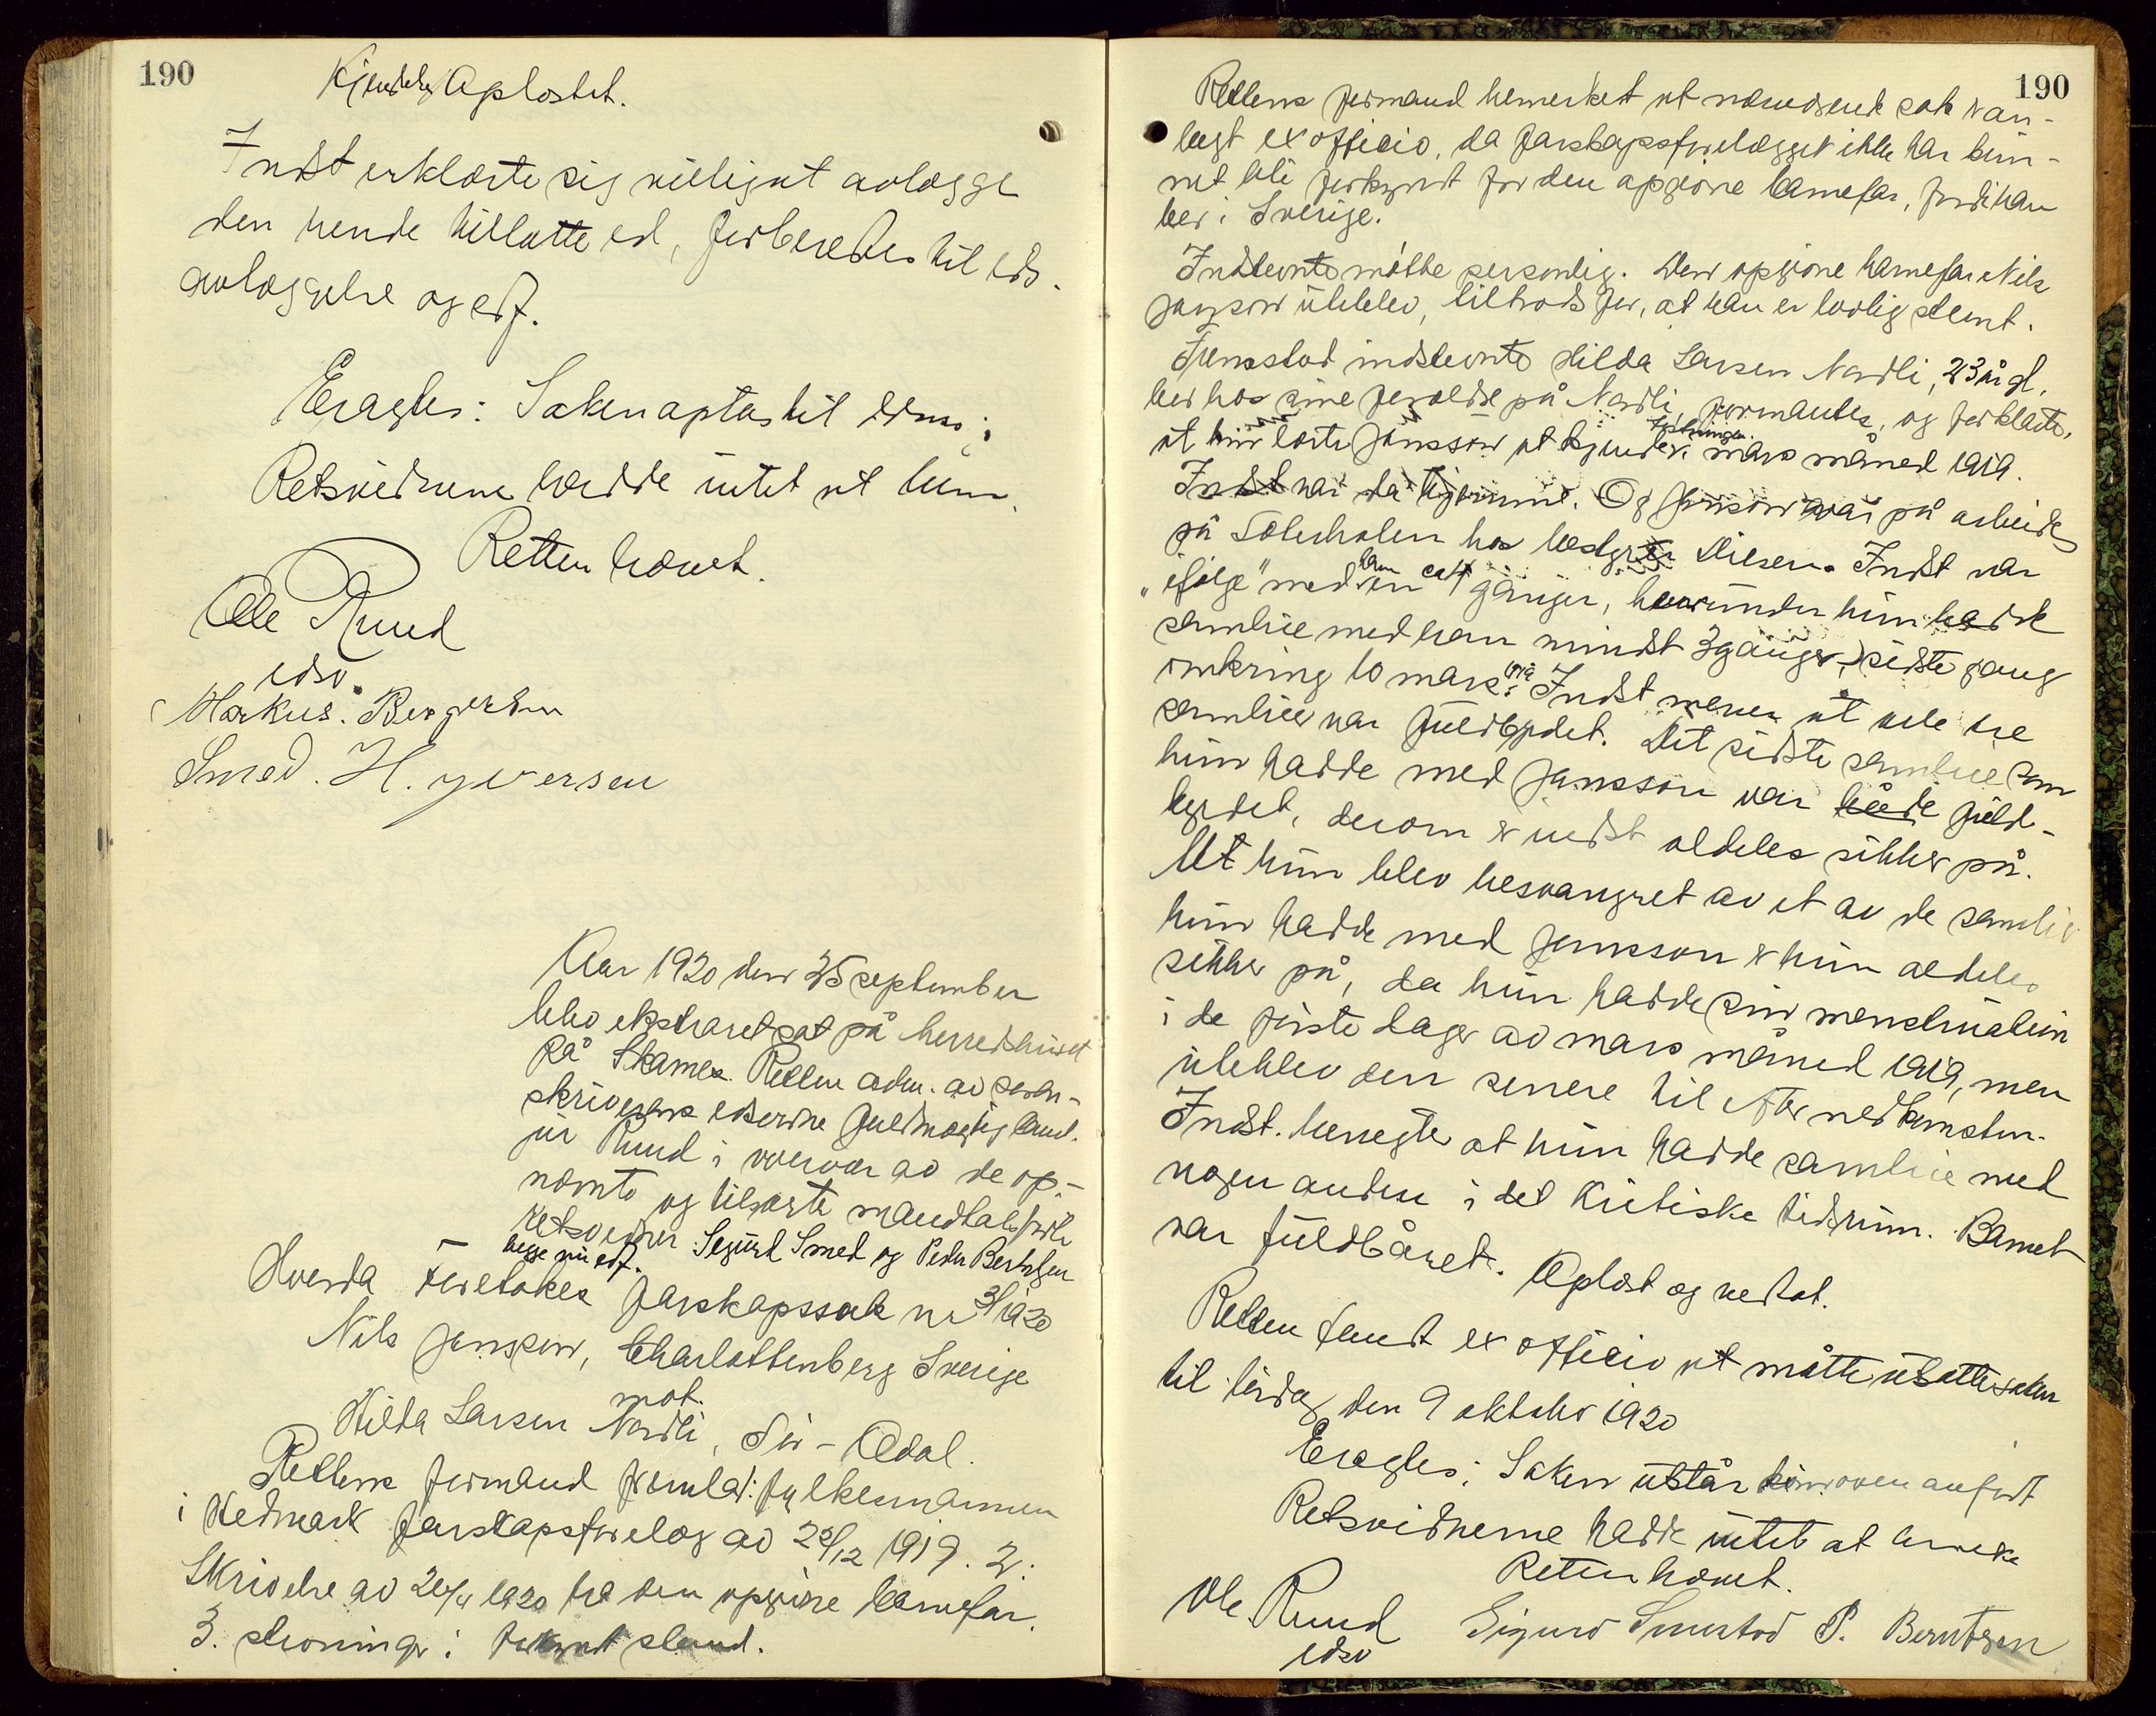 190
Kjendelse Oplæstet.
Indst erklærte sig villig at avlægge
den hende tillatte ed, forberedtes til eds-
avlæggelse og edf.
Eragtes: Saken optas til doms.
Retsvidnene hadde intet at bem.
Retten hævet.
Ole Ruud
edsv.
Markus. Bergersen
Smed. H. Iversen
Aar 1920 den 25 september
blev ekstraret sat på herredshuset
på Skarnes. Retten adm. av soren-
skriverens edsvorne fuldmægtig cand.
jur Ruud i overvær av de op-
nævnte og tilsagte mandtalsførte
retsvidner Sigurd Smed og Peder Berntsen
begge nu edf.
Hvorda foretokes farskapssak nr 31/1920
Nils Jansson, Charlottenberg Sverige
mot
Hilda Larsen Nordli, Sør-Odal.
Rettens formand fremla: fylkesmannen
i Hedmark farskapsforelæg av 20/12 1919. 2:
Skrivelse av 20/4 1920 fra den opgivne barnefar.
3. stevning i forkyndt stand.
190
Rettens formand bemerket at nærværende sak er an-
lagt ex officio, da farskapsforelægget ikke har kun-
net bli forkyndt for den opgivne barnefar, fordi han
bor i Sverige.
Indstevnte møtte personlig. Den opgivne barnefar Nils
Jansson uteblev, tiltrods for, at han er lovlig stevnt.
Fremstod indstevnte Hilda Larsen Nordli, 23 år gl,
bor hos sine foreldre på Nordli, formantes, og forklarte,
at hun lærte Jansson at kjende i mars måned 1919.
Indst var da hjemme. Og Jansson var på arbeide
på Solerholen hos Diesen. Indst var
"ifølge" med ham en gånger, hvorunder hun hadde
samleie med han mindst 3 ganger, sidste gang
omkring 10 mars. Indst mener at alle tre
samleier var fuldbyrdet. Det sidste samleie som
hun hadde med Jansson var både fuld-
byrdet, derom er indst aldeles sikker på.
At hun blev besvangret av et av de samleier
hun hadde med Jansson er hun aldeles
sikker på, da hun hadde sin menstruation
i de første dager av mars måned 1919, men
uteblev den senere til efter nedkomsten.
Indst. benegter at hun hadde samleie med
nogen anden i det kritiske tidsrum. Barnet
var fuldbåret. Oplæst og vedtat.
Retten fandt ex officio at måtte utsætte saken
til lørdag den 9 oktober 1920
Eragtes: Saken utstår som oven anført
Retsvidnerne hadde intet at bemerke
Retten hævet.
Ole Ruud
edsv
Sigurd Smestad P. Berntsen